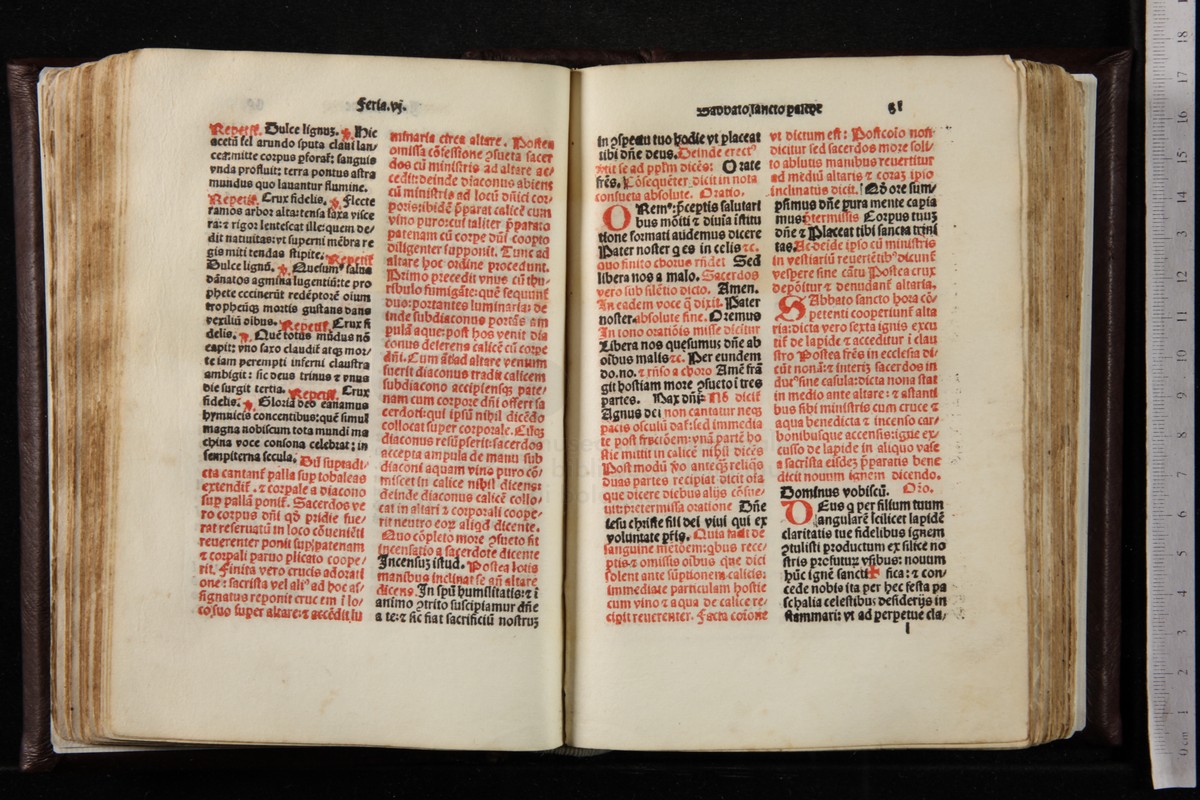 Feria.vj.
Repetit. Dulce lignuz. Hic
acetū fel arundo sputa claui lan/
cea: mitte corpus pforat: sanguis
vnda profluit: terra pontus astra
mundus quo lauantur flumine.
Repetit. Crux fidelis. Flecte
ramos arbor alta: tensa laxa visce
ra: τ rigor lentescat ille: quem de/
dit natiuitas: vt superni mēbra re
gis miti tendas stipite. Repetit
Dulce lignū. Quesumꝰ salua
dānatos agmina lugentiū: te pro
phete cecinerūt redēptorē oium
tropheūqꝫ mortis gustans dans
vexiliū oibus. Repetit. Crux fi
delis. Quē totus mūdus nō
capit: vno saxo claudit̄ atqꝫ mor/
te iam perempti inferni claustra
ambigit: sic deus trinus τ vnus
die surgit tertia. Repetit. Crux
fidelis. Gloria deo canamus
hymnicis concentibus: quē simul
magna nobiscum tota mundi ma
china voce consona celebrat: in
sempiterna secula. Dū suptadi/
cta cantant̄ palla sup tobaleas
extendit̄. τ corpale a diacono
sup pallā ponit̄. Sacerdos ve
ro corpus dn̄i qḋ pridie fue/
rat reseruatū in loco cōueniēti
reuerenter ponit sup patenam
τ corpali paruo plicato coope/
rit. Finita vero crucis adorati
one: sacrista vel aliꝰ ad hoc as/
signatus reponit crucem ī lo/
co suo super altare: τ accēdit lu
minaria circa altare. Postea
omissa cōfessione ꝯsueta sacer
dos cū ministris ad altare ac/
cedit: deinde diaconus abiens
cū ministris ad locū dn̄ici cor/
poris: ibidē pparat calicē cum
vino puro: cui taliter pparato
patenam cū corpe dn̄i coopto
diligenter supponit. Tunc ad
altare hoc ordine procedunt.
Primo precedit vnus cū thu/
ribulo fumigāte: quē sequunt̄
duo: portantes luminaria: de
inde subdiaconus portās am
pullā aque: post hos venit dia
conus deferens calicē cū corpe
dn̄i. Cum āt ad altare ventum
fuerit diaconus tradit calicem
subdiacono accipiensqꝫ pate/
nam cum corpore dn̄i offert sa
cerdoti: qui ipsū nihil dicēdo
collocat super corporale. Cūqꝫ
diaconus resūpserit: sacerdos
accepta ampula de manu sub
diaconi aquam vino puro cō/
miscet in calice nihil dicens:
deinde diaconus calicē collo/
cat in altari τ corporali coope/
rit neutro eoꝝ aliqḋ dicente.
Quo cōpleto more ꝯsueto fit
incensatio a sacerdote dicente
Incensuz istud. Postea lotis
manibus inclinat se añ altare
dicens. In spū humilitatis: τ ī
animo ꝯtrito suscipiamur dn̄e
a te: τ sic fiat sacrificiū nostruꝫ
Sabbato sancto pasche 81
in ꝯspectu tuo hodie vt placeat
tibi dn̄e deus. Deinde erectꝰ
vertit se ad pplm dicēs: Orate
frēs. Cōsequēter dicit in nota
consueta absolute. Oratio.
ORemꝰ: pceptis salutari
bus mōiti τ diuia īstitu
tione formati audemus dicere
Pater noster q es in celis τc.
quo finito chorus rn̄det Sed
libera nos a malo. Sacerdos
vero sub silētio dicto. Amen.
In eadem voce q̄ dixit. Pater
noster. absolute sine. Oremus
In tono oratiōis misse dicitur
Libera nos quesumus dn̄e ab
oībus malis τc. Per eundem
do. no. τ rn̄so a choro Amē frā
git hostiam more ꝯsueto ī tres
partes. Pax dn̄i. Nō dicit̄
Agnus dei non cantatur neqꝫ
pacis osculū dat̄: sed immedia
te post fractiōem: vnā partē ho
stie mittit in calicē nihil dicēs
Post modū ṽo anteqꝫ reliqs
duas partes recipiat dicit ōsa
que dicere diebus alijs cōsue/
uit: pretermissa oratione Dn̄e
Iesu christe fili dei viui qui ex
voluntate pr̄is. Quia fadit de
sanguine metōem: qbus rece/
ptis τ omissis oibus que dici
solent ante sūptionem calicis:
immediate particulam hostie
cum vino τ aqua de calice re/
cipit reuerenter. Facta coione
vt dictum est: Postcoīo non
dicitur sed sacerdos more soli/
to ablutis manibus reuertitur
ad mediū altaris τ coraꝫ ipso
inclinatus dicit. Qḋ ore sum/
psimus dn̄e pura mente capia
mus: ptermissis Corpus tuuꝫ
dn̄e τ Placeat tibi sancta trini
tas. Ac deide ipso cū ministris
in vestiariū reuertētibꝰ dicunt̄
vespere sine cātu Postea crux
depōitur τ denudant̄ altaria.
SAbbato sancto hora cō/
petenti cooperiunt̄ alta
ria: dicta vero sexta ignis excu
tit̄ de lapide τ accenditur ī clau
stro Postea frēs in ecclesia di/
cūt nonā: τ interiꝫ sacerdos in
dutꝰ sine casula: dicta nona stat
in medio ante altare: τ astanti
bus sibi ministris cum cruce τ
aqua benedicta τ incenso car/
bonibusque accensis: igne ex/
cusso de lapide in aliquo vase
a sacrista eisdeꝫ pparatis bene
dicit nouum ignem dicendo.
Dominus vobiscū. Oro.
DEus q per filium tuum
angularē scilicet lapidē
claritatis tue fidelibus ignem
ꝯtulisti productum ex silice no
stris profuturꝫ vsibus: nouum
hūc ignē sancti✠fica: τ con/
cede nobis ita per hec festa pa
schalia celestibus desiderijs in
flammari: vt ad perpetue cla/
l